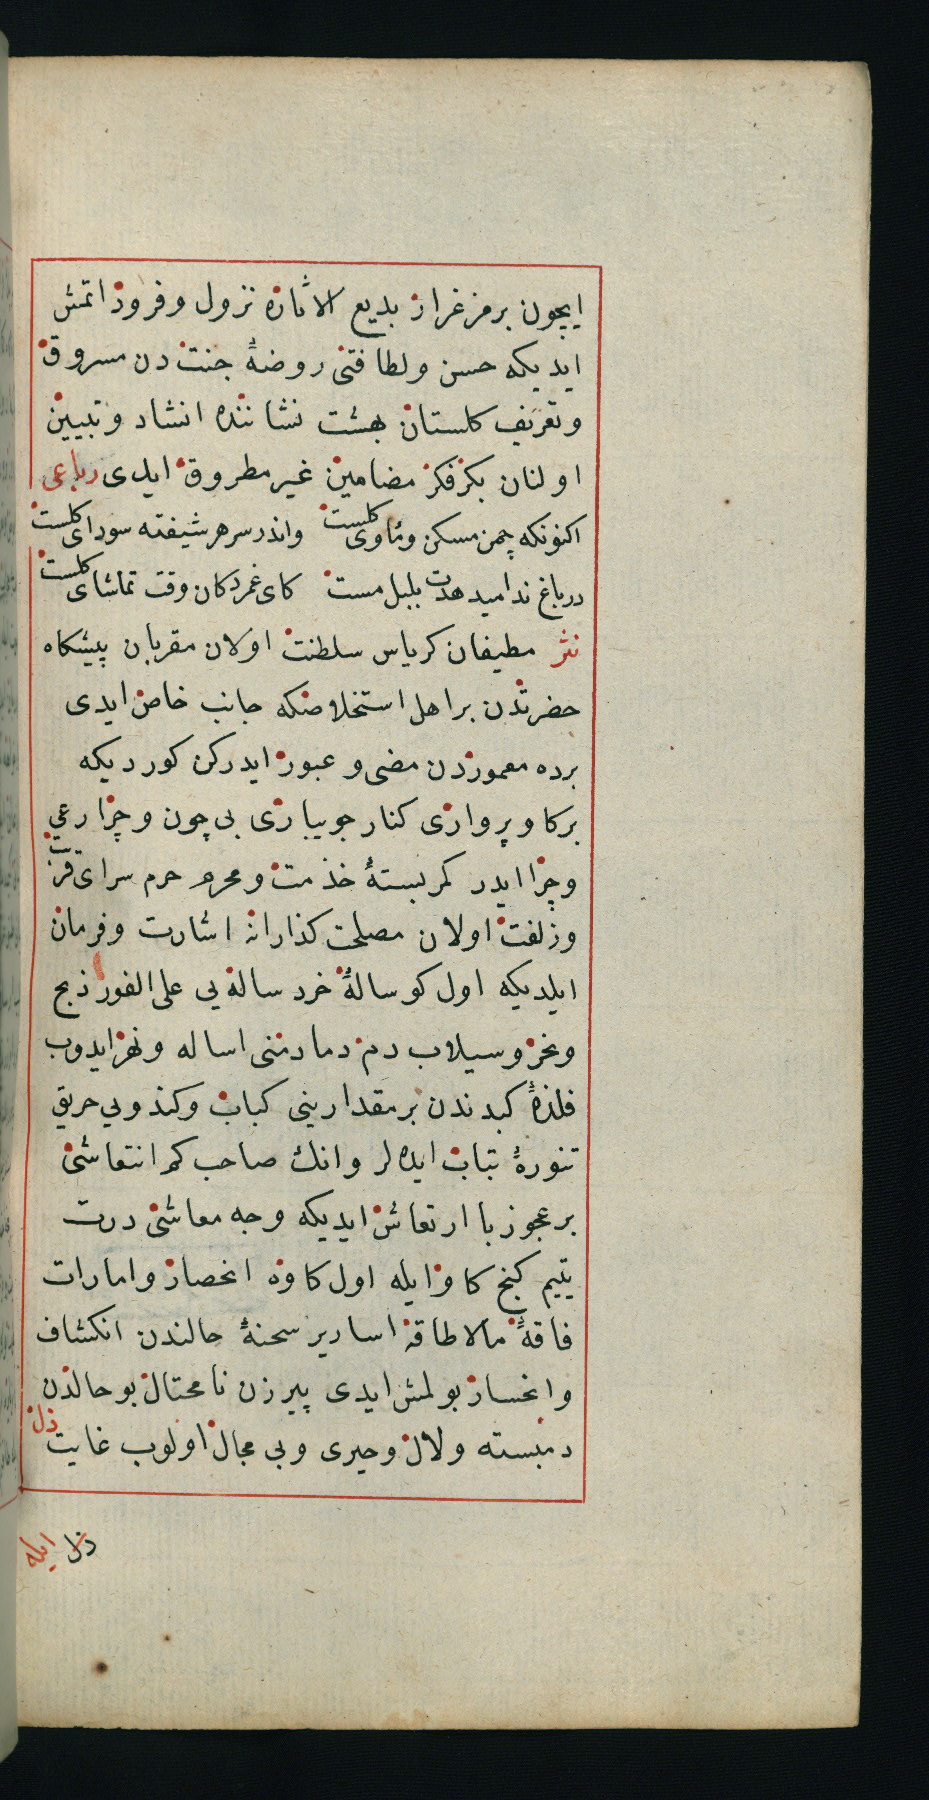 ایچون بر مرغزار بدیع الاثاره نزول و فرود اتمش
ایدیکه حسن ولطافتنی روضۀ جنت دن مسروق
وتعریف کلستان بهشت نشاننده انشاد وتبیین
اولنان بکر فکر مضامین غیر مطروق ایدی رباعی
اکنونکه چمن مسکن ومأوی کلست واندر سر هر شیفته سودای کلست
در باغ ندا میدهدت بلبل مست کای غمزدکان وقت تماشای کلست
نثر مطیفان کریاس سلطنت اولان مقربان پیشکاه
حضرتدن بر اهل استخلاصکه جانب خاص ایدی
برده معموردن مضی و عبور ایدرکن کوردیکه
بر کاو پرواری کنار جویباری بی چون وچرا رعی
وچرا ایدر کمر بستۀ خدمت ومحرم حرم سرای قربت
وزلفت اولان مصلحت کذارانه اشارت وفرمان
ایلدیکه اول کوسالۀ خرد ساله یی علی الفور ذبح
ونحر وسیلاب دم دمادمنی اساله ونهر ایدوب
فلذۀ کبدندن بر مقدارینی کباب وکندویی حریق
تنورۀ تباب ایده لر وانك صاحب کم انتعاشی
بر عجوز با ارتعاش ایدیکه وجه معاشی درت
یتیم کنج کاو ایله اول کاوه انحصار وامارات
فاقۀ مالاطاقه اساریر سحنۀ حالندن انکشاف
وانحسار بولمش ایدی پیر زن نامحتال بو حالدن
دمبسته ولال وحیری وبی مجال اولوب غایت ذل
ذل ایله